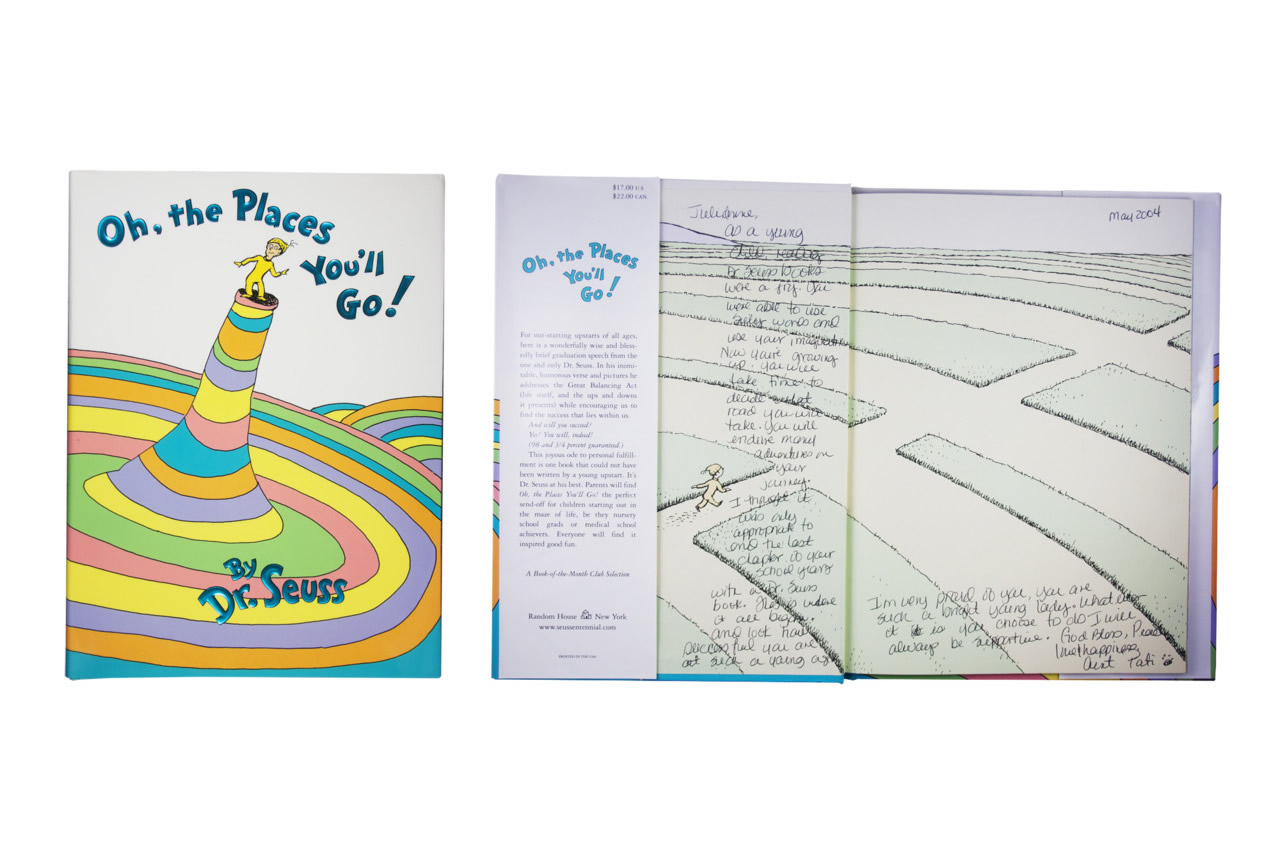 Oh, the Places
You'll
Go!
By
Dr. Seuss
$17.00 U.S.
$22.00 CAN.
Oh, the Places
You'll
Go!
For out-starting upstarts of all ages,
here is a wonderfully wise and bless-
edly brief graduation speech from the
one and only Dr. Seuss. In his inimi-
table, humorous verse and pictures he
addresses the Great Balancing Act
(life itself, and the ups and downs
it presents) while encouraging us to
find the success that lies within us.
And will you succeed?
Yes! You will, indeed!
(98 and 3/4 percent guaranteed.)
This joyous ode to personal fulfill-
ment is one book that could not have
been written by a young upstart. It's
Dr. Seuss at his best. Parents will find
Oh, the Places You'll Go! the perfect
send-off for children starting out in
the maze of life, be they nursery
school grads or medical school
achievers. Everyone will find it
inspired good fun.
A Book-of-the-Month Club Selection
Random House New York
www.seussentennial.com
PRINTED IN THE USA
Julianne,
as a young
child reading
Dr Seuss books
were a joy. You
were able to use
words and
use your imagination
Now you're growing
up. You will
take time to
decide what
road you will
take. You will
endure many
adventures on
your
journey.
I thought it
was only
appropriate to
end the last
chapter of your
school years
with a Dr. Seuss
book.
it all began.
and look how
successful you are
at such a young age
May 2004
I'm very proud of you, you are
such a bright young lady. What ever
it is you choose to do I will
always be supportive. God Bless, Peace
love, happiness
Aunt Pati